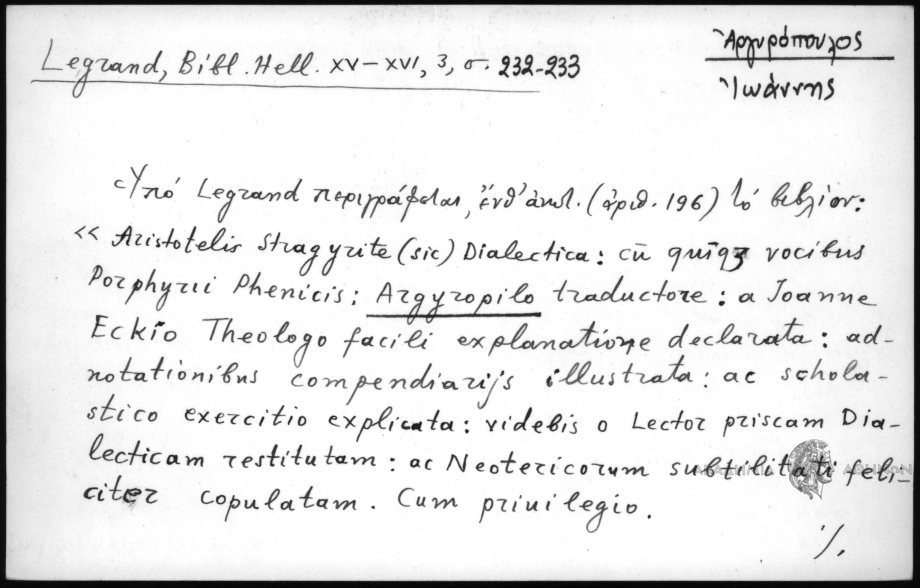 Ἀργυρόπουλος
Ἰωάννης
Legrand, Bibl. Hell. XV–XVI, 3, σ. 232-233
Ὑπό Legrand περιγράφεται, ἔνθ' ἀνωτ. (ἀριθ. 196) τό βιβλίον:
«Aristotelis Stragyrite (sic) Dialectica: cū quīqꝫ vocibus
Porphyrii Phenicis: Argyropilo traductore: a Joanne
Eckio Theologo facili explanatione declarata: ad-
notationibus compendiarijs illustrata: ac schola-
stico exercitio explicata: videbis o Lector priscam Dia-
lecticam restitutam: ac Neotericorum subtilitati feli-
citer copulatam. Cum priuilegio.
./.